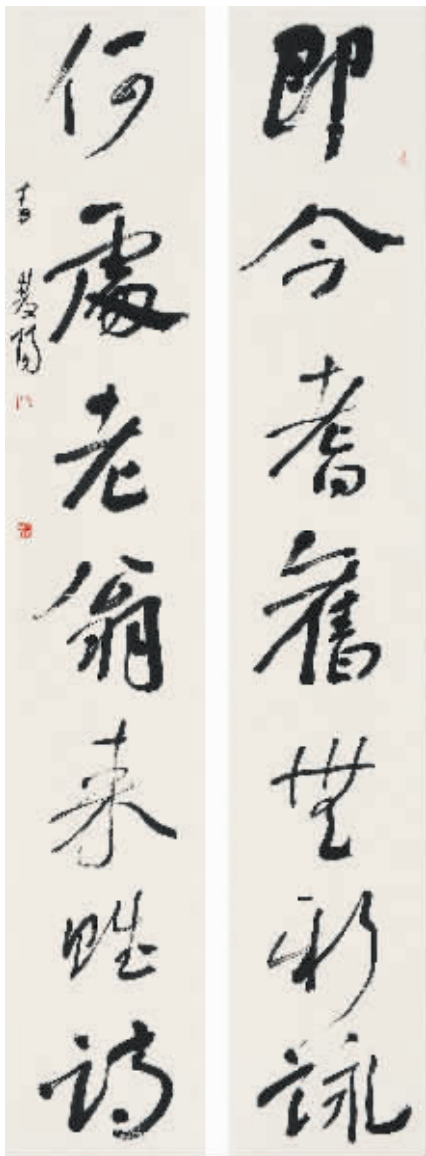 即今耆舊無新詠
何處老翁來賦詩